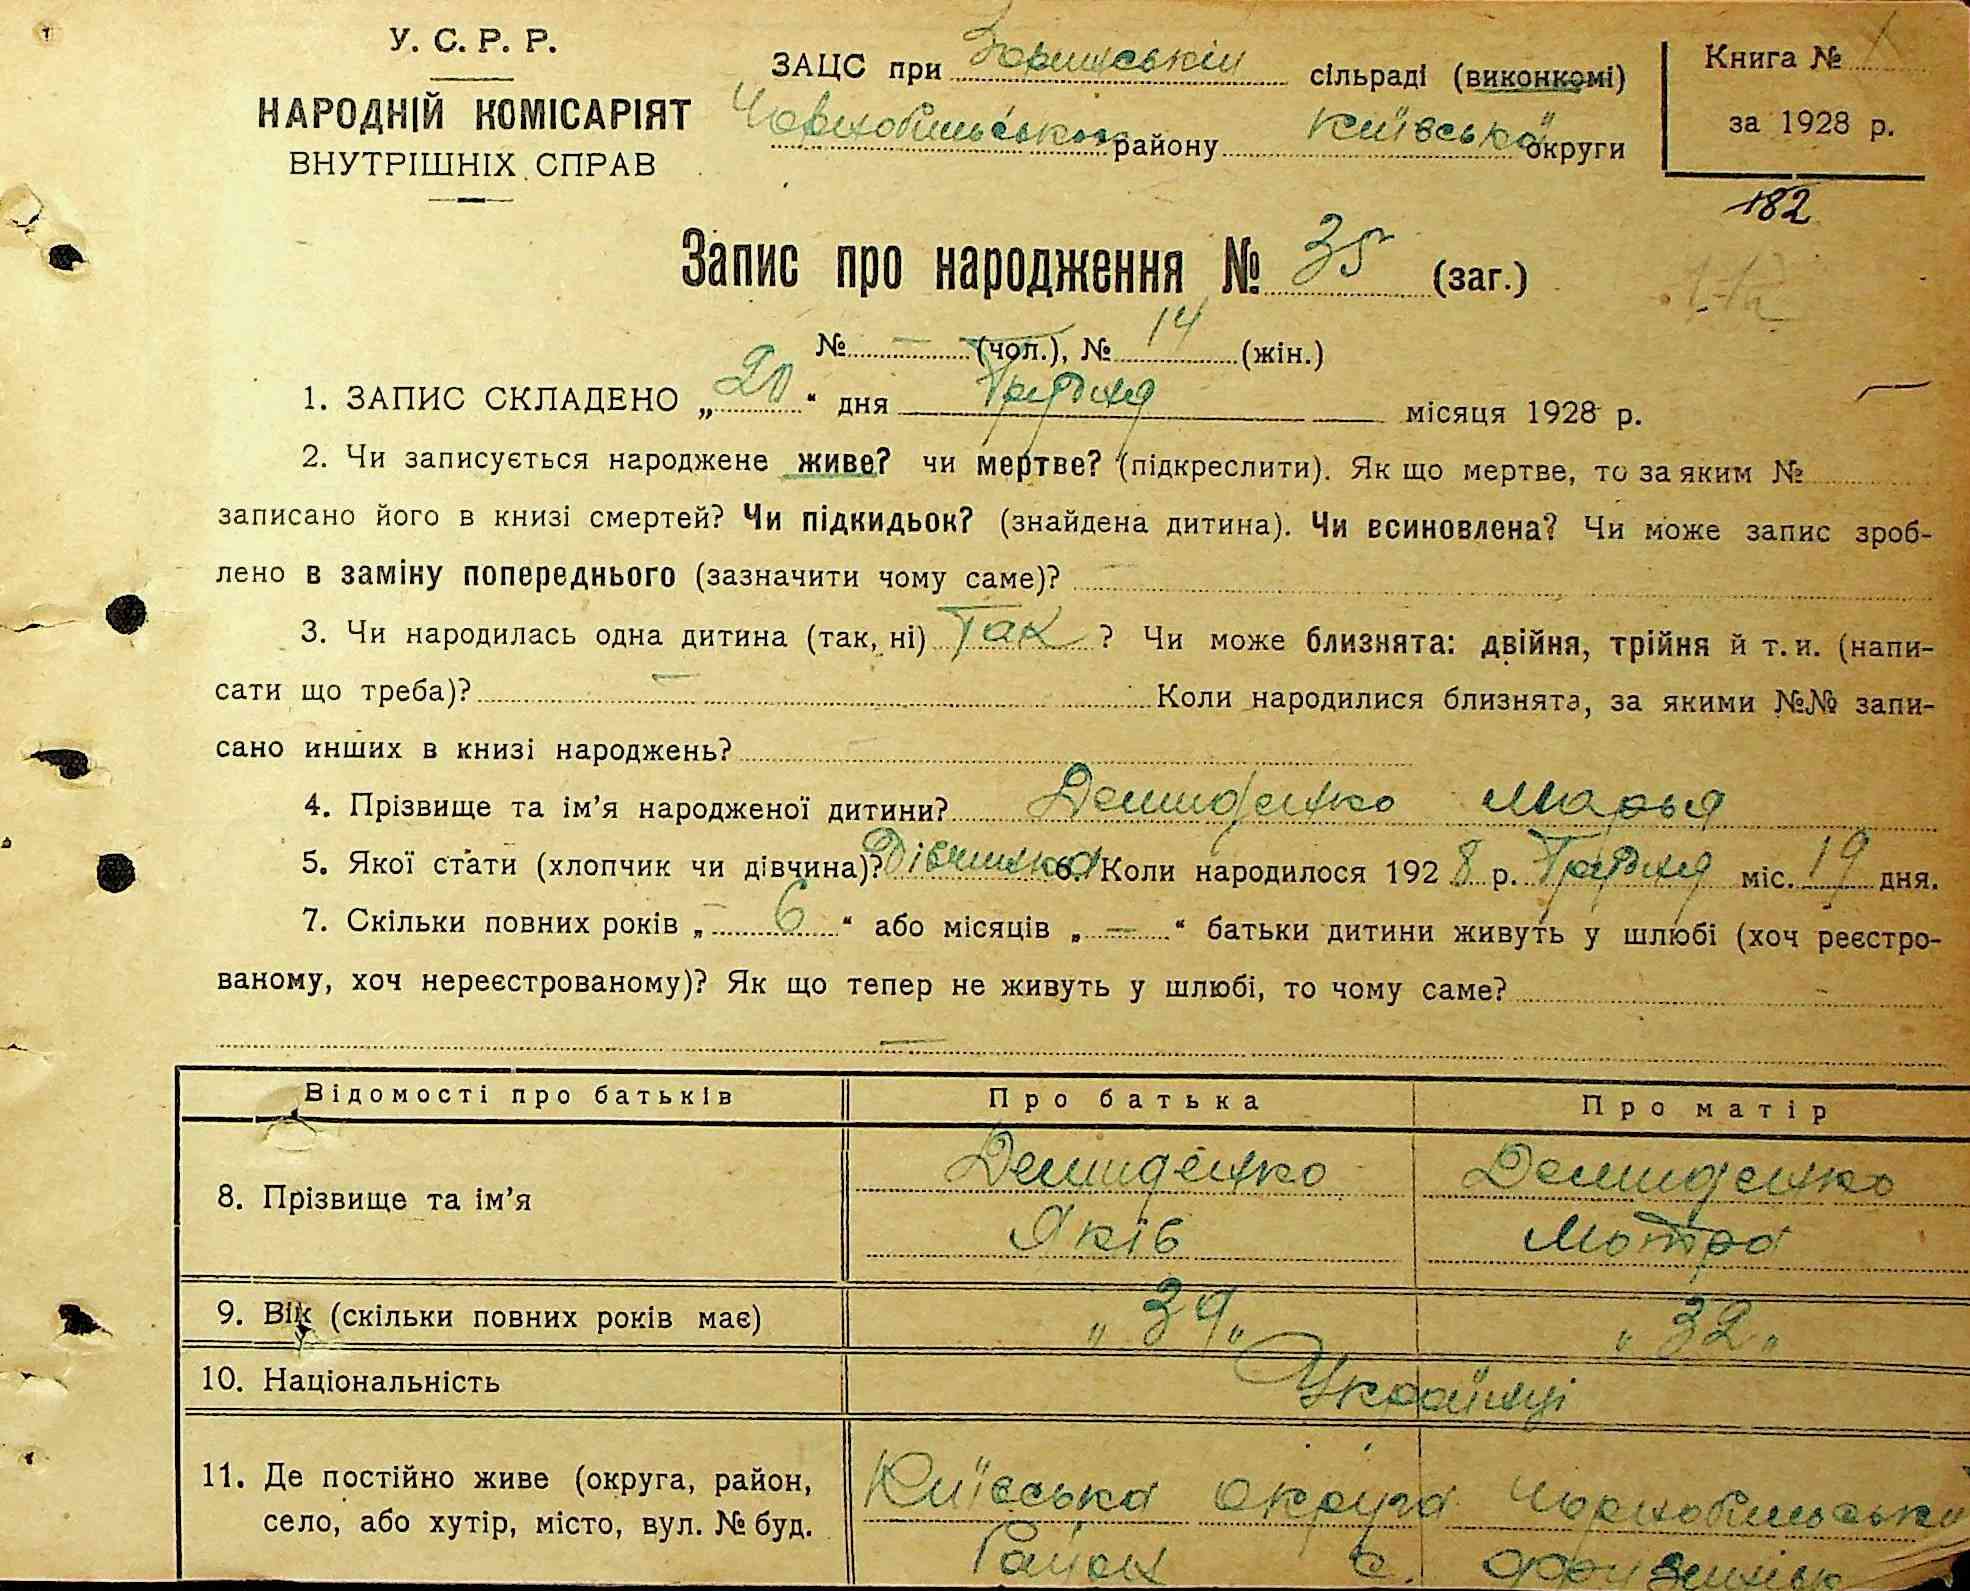 У. С. Р. Р.
НАРОДНІЙ КОМІСАРІЯТ
ВНУТРІШНІХ СПРАВ
ЗАЦС при сільраді (виконкомі)
Чорнобильського району Київської округи
Книга №
за 1928 р.
182
Запис про народження № 35 (заг.)
№ — (чол.), № 14 (жін.)
1. ЗАПИС СКЛАДЕНО „ 20 “ дня Грудня місяця 1928 р.
2. Чи записується народжене живе? чи мертве? (підкреслити). Як що мертве, то за яким №
записано його в книзі смертей? Чи підкидьок? (знайдена дитина). Чи всиновлена? Чи може запис зроб-
лено в заміну попереднього (зазначити чому саме)? —
3. Чи народилась одна дитина (так, ні) Так ? Чи може близнята: двійня, трійня й т. и. (напи-
сати що треба)? — Коли народилися близнята, за якими №№ запи-
сано инших в книзі народжень? —
4. Прізвище та ім’я народженої дитини? Демиденко Марья
5. Якої стати (хлопчик чи дівчина)? Дівчинка 6. Коли народилося 1928 р. Грудня міс. 19 дня.
7. Скільки повних років „ 6 “ або місяців „ — “ батьки дитини живуть у шлюбі (хоч реєстро-
ваному, хоч нереєстрованому)? Як що тепер не живуть у шлюбі, то чому саме? —
—
Відомості про батьків Про батька Про матір
8. Прізвище та ім’я Демиденко Демиденко
Яків Мотра
9. Вік (скільки повних років має) „ 39 „ „ 32 „
10. Національність Українці
11. Де постійно живе (округа, район, Київська округа Чорнобильський
село, або хутір, місто, вул. № буд. Район с.